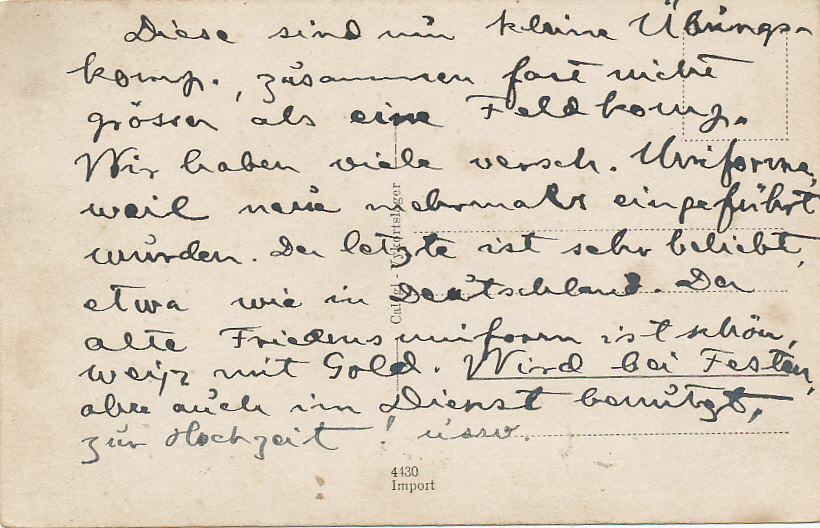 Diese sind nur kleine Übungs-
komp., zusammen fast nicht
grösser als eine Feldkomp.
Wir haben viele versch. Uniforme,
weil neue mehrmals eingeführt
wurden. Der letzte ist sehr beliebt,
etwa wie in Deutschland. Der
alte Friedensuniform ist schön,
weiß mit Gold. Wird bei Festen,
aber auch im Dienst benützt,
zur Hochzeit! usw.
4430
Import